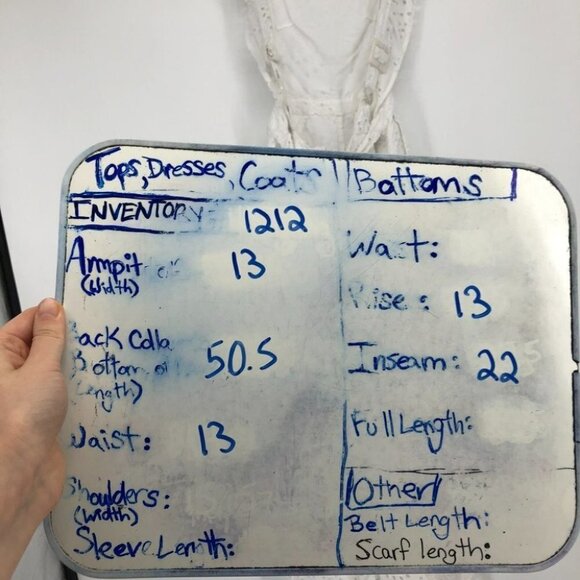 Tops, Dresses, Coats
INVENTORY 1212
Armpit 13
(Width)
Back Colla
Bottom of 50.5
Length)
Waist: 13
Shoulders:
(width)
Sleeve Length:
Bottoms
Waist:
Rise: 13
Inseam: 22
Full Length:
Other
Belt Length:
Scarf length: